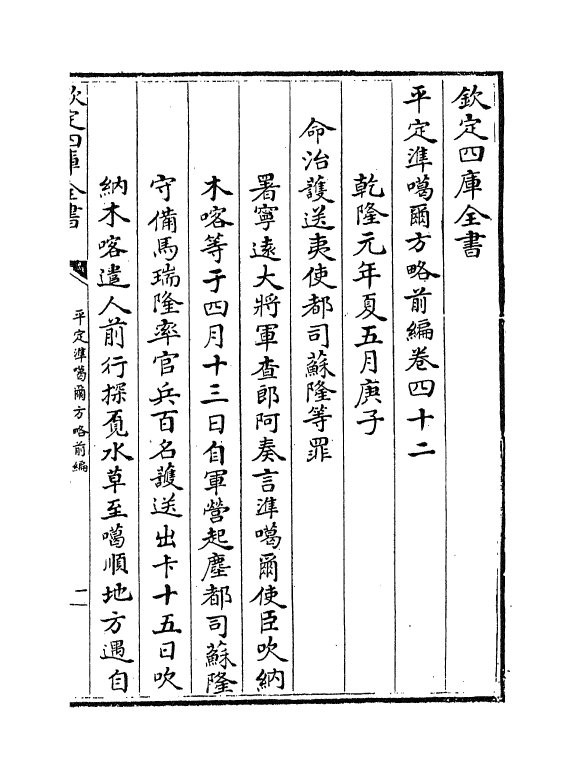 欽定四庫全書
平定準噶爾方略前編卷四十二
乾隆元年夏五月庚子
命治護送夷使都司蘇隆等罪
署寧遠大將軍查郎阿奏言準噶爾使臣吹納
木喀等于四月十三日自軍營起塵都司蘇隆
守備馬瑞隆率官兵百名護送出卡十五日吹
納木喀遣人前行探覔水草至噶順地方遇自
欽定四庫全書
平定準噶爾方略前編
一